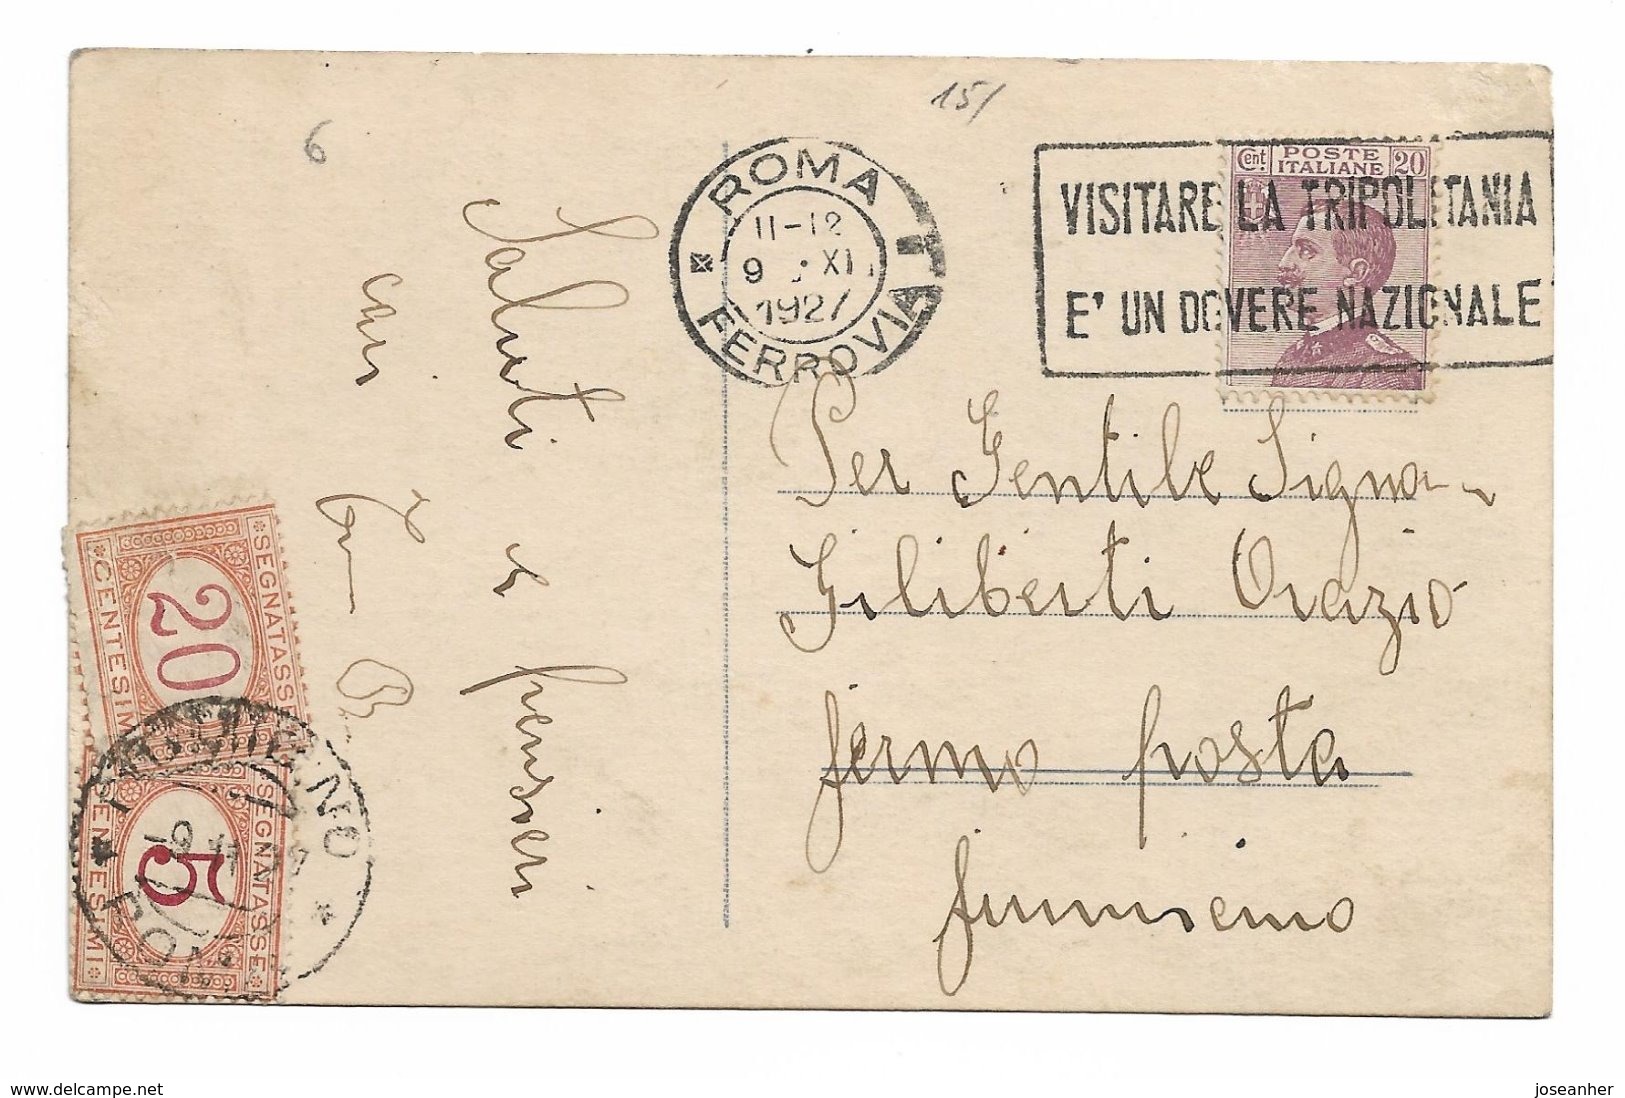 15/
6
ROMA
11-12
9 XI
1927
FERROVIA
VISITARE LA TRIPOLITANIA
E' UN DOVERE NAZIONALE
Cent. POSTE ITALIANE 20
Per Gentile Signa
Giliberti Orazio
fermo posta
Saluti e pensieri
cari
SEGNATASSE
20
CENTESIMI
SEGNATASSE
5
CENTESIMI
delcampe.net
joseanher